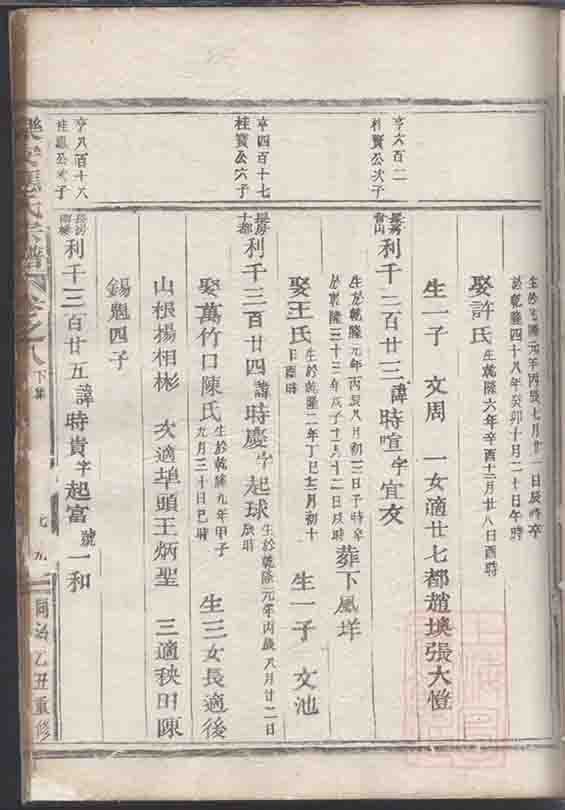 生於乾隆元年丙辰七月廿一日辰時卒
於乾隆四十八年癸卯十月二十日午時
娶許氏
生乾隆六年辛酉十二月廿八日酉時
生一子 文周 一女適廿七都趙墺張大愷
亨六百二
桂寶公次子
利千三百廿三諱時喧字宜友
生於乾隆元年丙辰八月初三日子時卒
葬下風垟
娶王氏
生於乾隆二年丁巳十二月初十
日酉時
生一子 文池
亨四百十七
桂寶公六子
長房
十都
利千三百廿四諱時慶字起球
生於乾隆元年丙辰八月廿二日
戌時
娶萬竹口陳氏
生於乾隆九年甲子
九月三十日巳時
生三女長適後
山根楊相彬 次適埠頭王炳聖 三適秧田陳
錫魁四子
亨八百十八
長房
利千三百廿五諱時貴字起富號一和
氏宗譜 卷之八 下集
同治乙丑重修